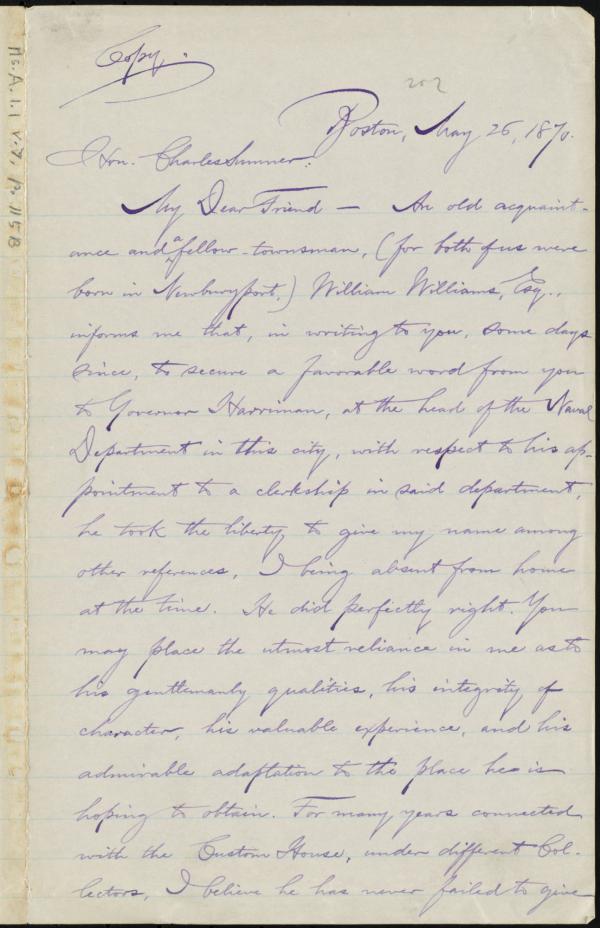 Copy.
202
Boston, May 26, 1870.
Hon. Charles Sumner:
My Dear Friend — An old acquaint-
ance and a fellow-townsman, (for both of us were
born in Newburyport,) William Williams, Esq.,
informs me that, in writing to you, some days
since, to secure a favorable word from you
to Governor Harriman, at the head of the Naval
Department in this city, with respect to his ap-
pointment to a clerkship in said department,
he took the liberty to give my name among
other references, I being absent from home
at the time. He did perfectly right. You
may place the utmost reliance in me as to
his gentlemanly qualities, his integrity of
character, his valuable experience, and his
admirable adaptation to the place he is
hoping to obtain. For many years connected
with the Custom House, under different Col-
lectors, I believe he has never failed to give
Ms. A. 1. 1 v. 7, p. 115B